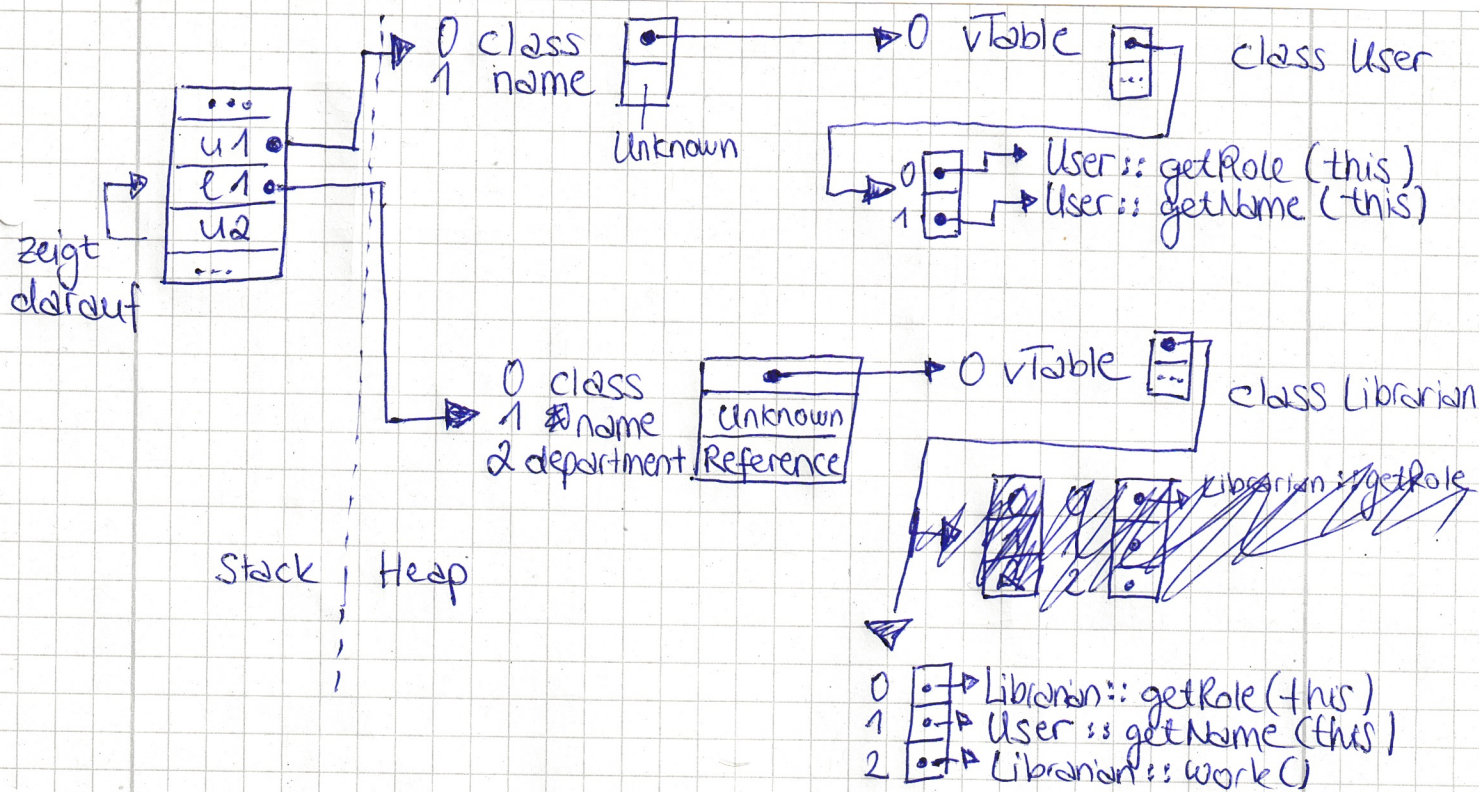 0 class
1 name
Unknown
0 vTable
...
class User
...
u1
l1
u2
...
zeigt
darauf
0
1
User:: getRole (this)
User:: getName (this)
0 class
1 name
2 department
Unknown
Reference
0 vTable
...
class Librarian
0
1
2
Librarian :: getRole
Stack
Heap
0 Librarian:: getRole (this)
1 User :: getName (this)
2 Librarian :: work ()